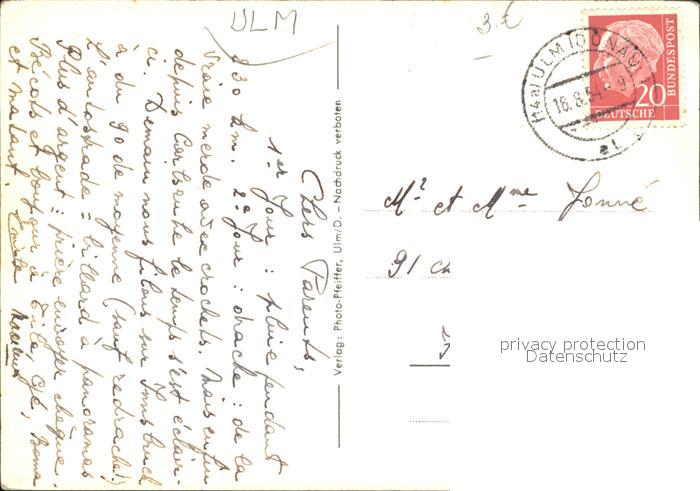 ULM
3.€
Chers Parents,
1er Jour : pluie pendant
230 km. 2e Jour : drache : de la
vraie merde avec crochets. Mais enfin
depuis Carlsruhe le temps s'est éclair-
ci. Demain nous filons sur Innsbruck
à du 90 de moyenne (sauf redrache!)
L'autostrade = billard à panoramas
Plus d'argent : prière envoyer chèque.
Bécots et bonjour à Bila, Gé, Boma
et matant.
Verlag: Photo-Pfeiffer, Ulm/D. – Nachdruck verboten
(14a) ULM (DONAU)
16.8.54
a1
DEUTSCHE
BUNDESPOST
20
Mr et Mme Jonné
91
privacy protection
Datenschutz